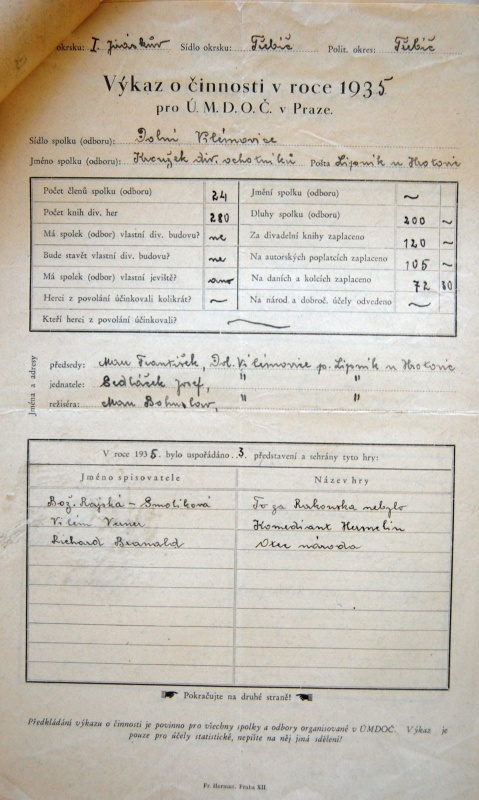 okrsku: I. Jiráskův Sídlo okrsku: Třebíč Polit. okres: Třebíč
Výkaz o činnosti v roce 1935
pro Ú. M. D. O. Č. v Praze.
Sídlo spolku (odboru): Dolní Vilémovice
Jméno spolku (odboru): Kroužek div. ochotníků Pošta Lipník u Hrotovic
Počet členů spolku (odboru) 24 Jmění spolku (odboru) ~
Počet knih div. her 280 Dluhy spolku (odboru) 200 ~
Má spolek (odbor) vlastní div. budovu? ne Za divadelní knihy zaplaceno 120 ~
Bude stavět vlastní div. budovu? ne Na autorských poplatcích zaplaceno 105 ~
Má spolek (odbor) vlastní jeviště? ano Na daních a kolcích zaplaceno 72 80
Herci z povolání účinkovali kolikrát? ~ Na národ. a dobroč. účely odvedeno ~
Kteří herci z povolání účinkovali? ~
Jména a adresy
předsedy: Man František, Dol. Vilémovice p. Lipník u Hrotovic
jednatele: Sedláček Josef, " "
režiséra: Man Bohuslav, " "
V roce 1935. bylo uspořádáno 3. představení a sehrány tyto hry:
Jméno spisovatele Název hry
Bož. Rajská - Smolíková To za Rakouska nebylo
Vilém Werner Komediant Hermelin
Richard Branald Otec národa
Pokračujte na druhé straně!
Předkládání výkazu o činnosti je povinno pro všechny spolky a odbory organisované v ÚMDOČ. Výkaz je
pouze pro účely statistické, nepište na něj jiná sdělení!
Fr. Herman, Praha XII.